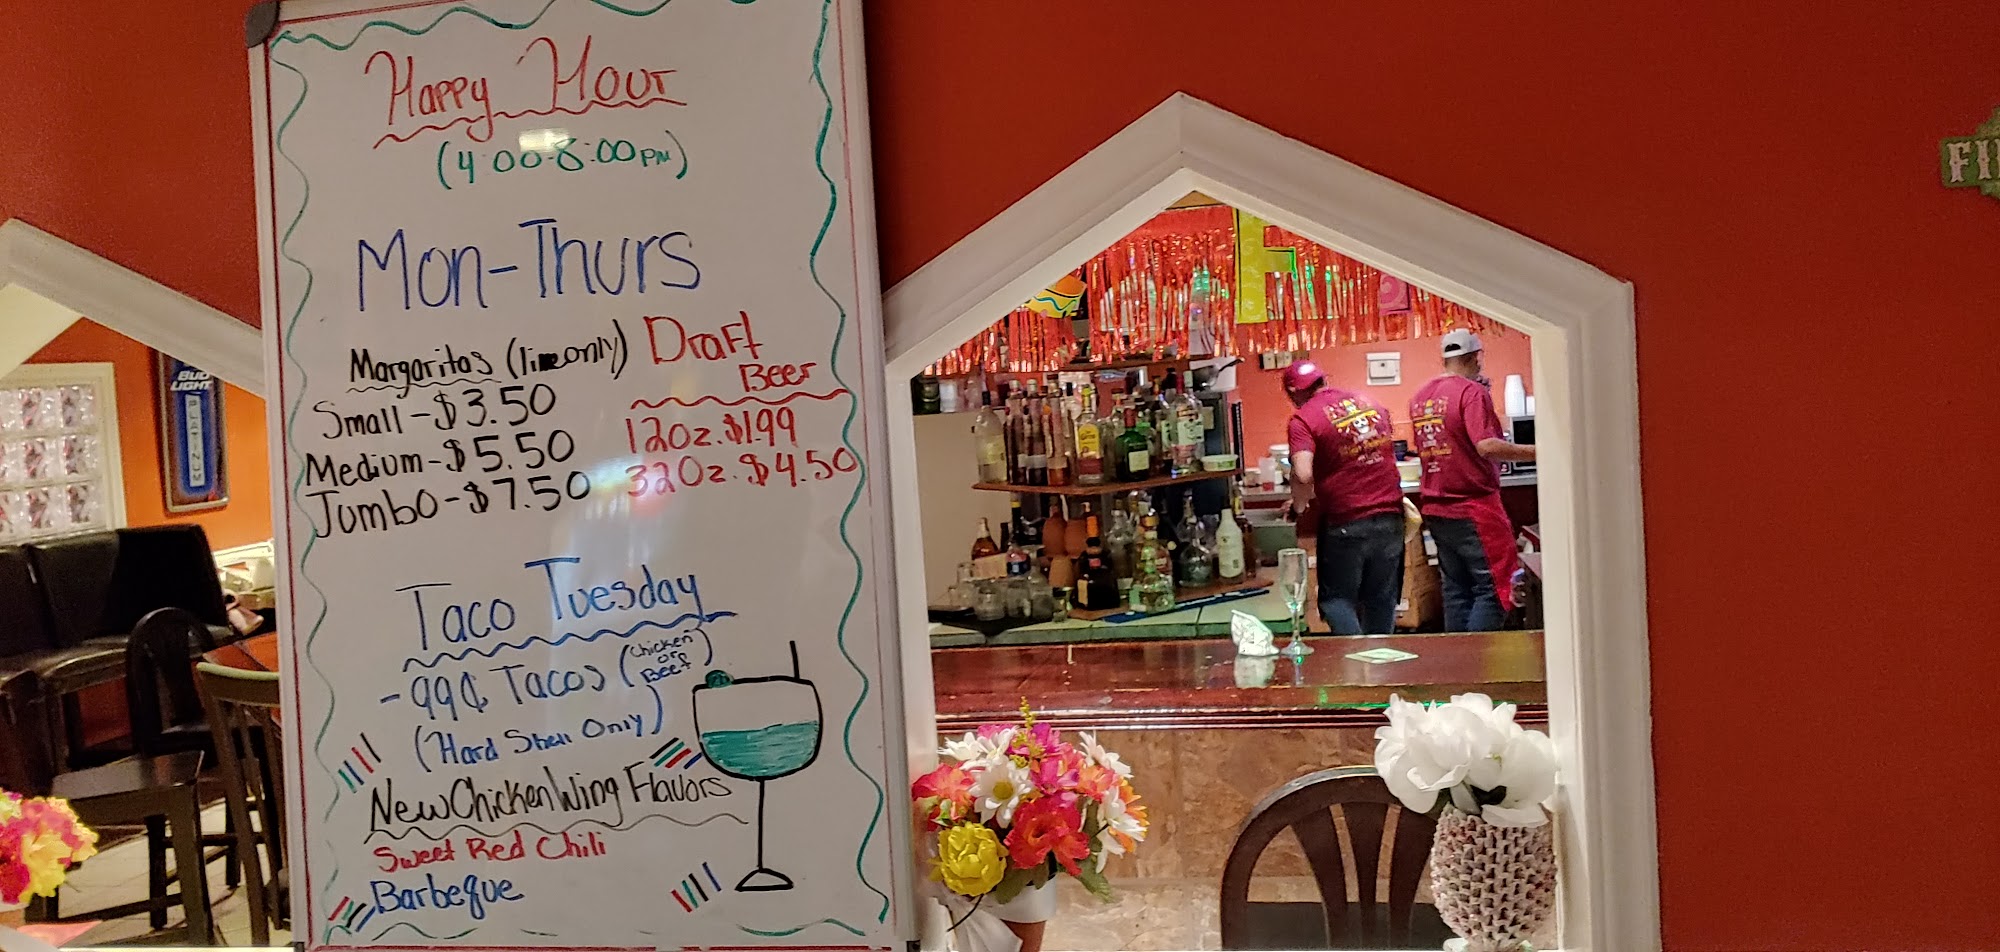 Happy Hour
(4:00-8:00PM)
Mon-Thurs
Margaritas (lime only)
Small - $3.50
Medium - $5.50
Jumbo - $7.50
Draft
Beer
12oz. $1.99
32oz. $4.50
Taco Tuesday
- 99¢ Tacos (Chicken or Beef)
(Hard Shell Only)
New Chicken Wing Flavors
Sweet Red Chili
Barbeque
BUD
LIGHT
PLATINUM
F
FI